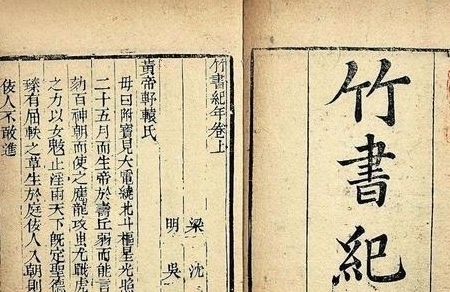 竹書紀
竹書紀年卷上
梁 沈
明 吳
黃帝軒轅氏
母曰附寶見大電繞北斗樞星光照
二十五月而生帝於壽丘弱而能言
劾百神朝而使之應龍攻蚩尤戰虎
之力以女魃止淫雨天下既定聖德
臻有屈軼之草生於庭佞人入朝則
佞人不敢進